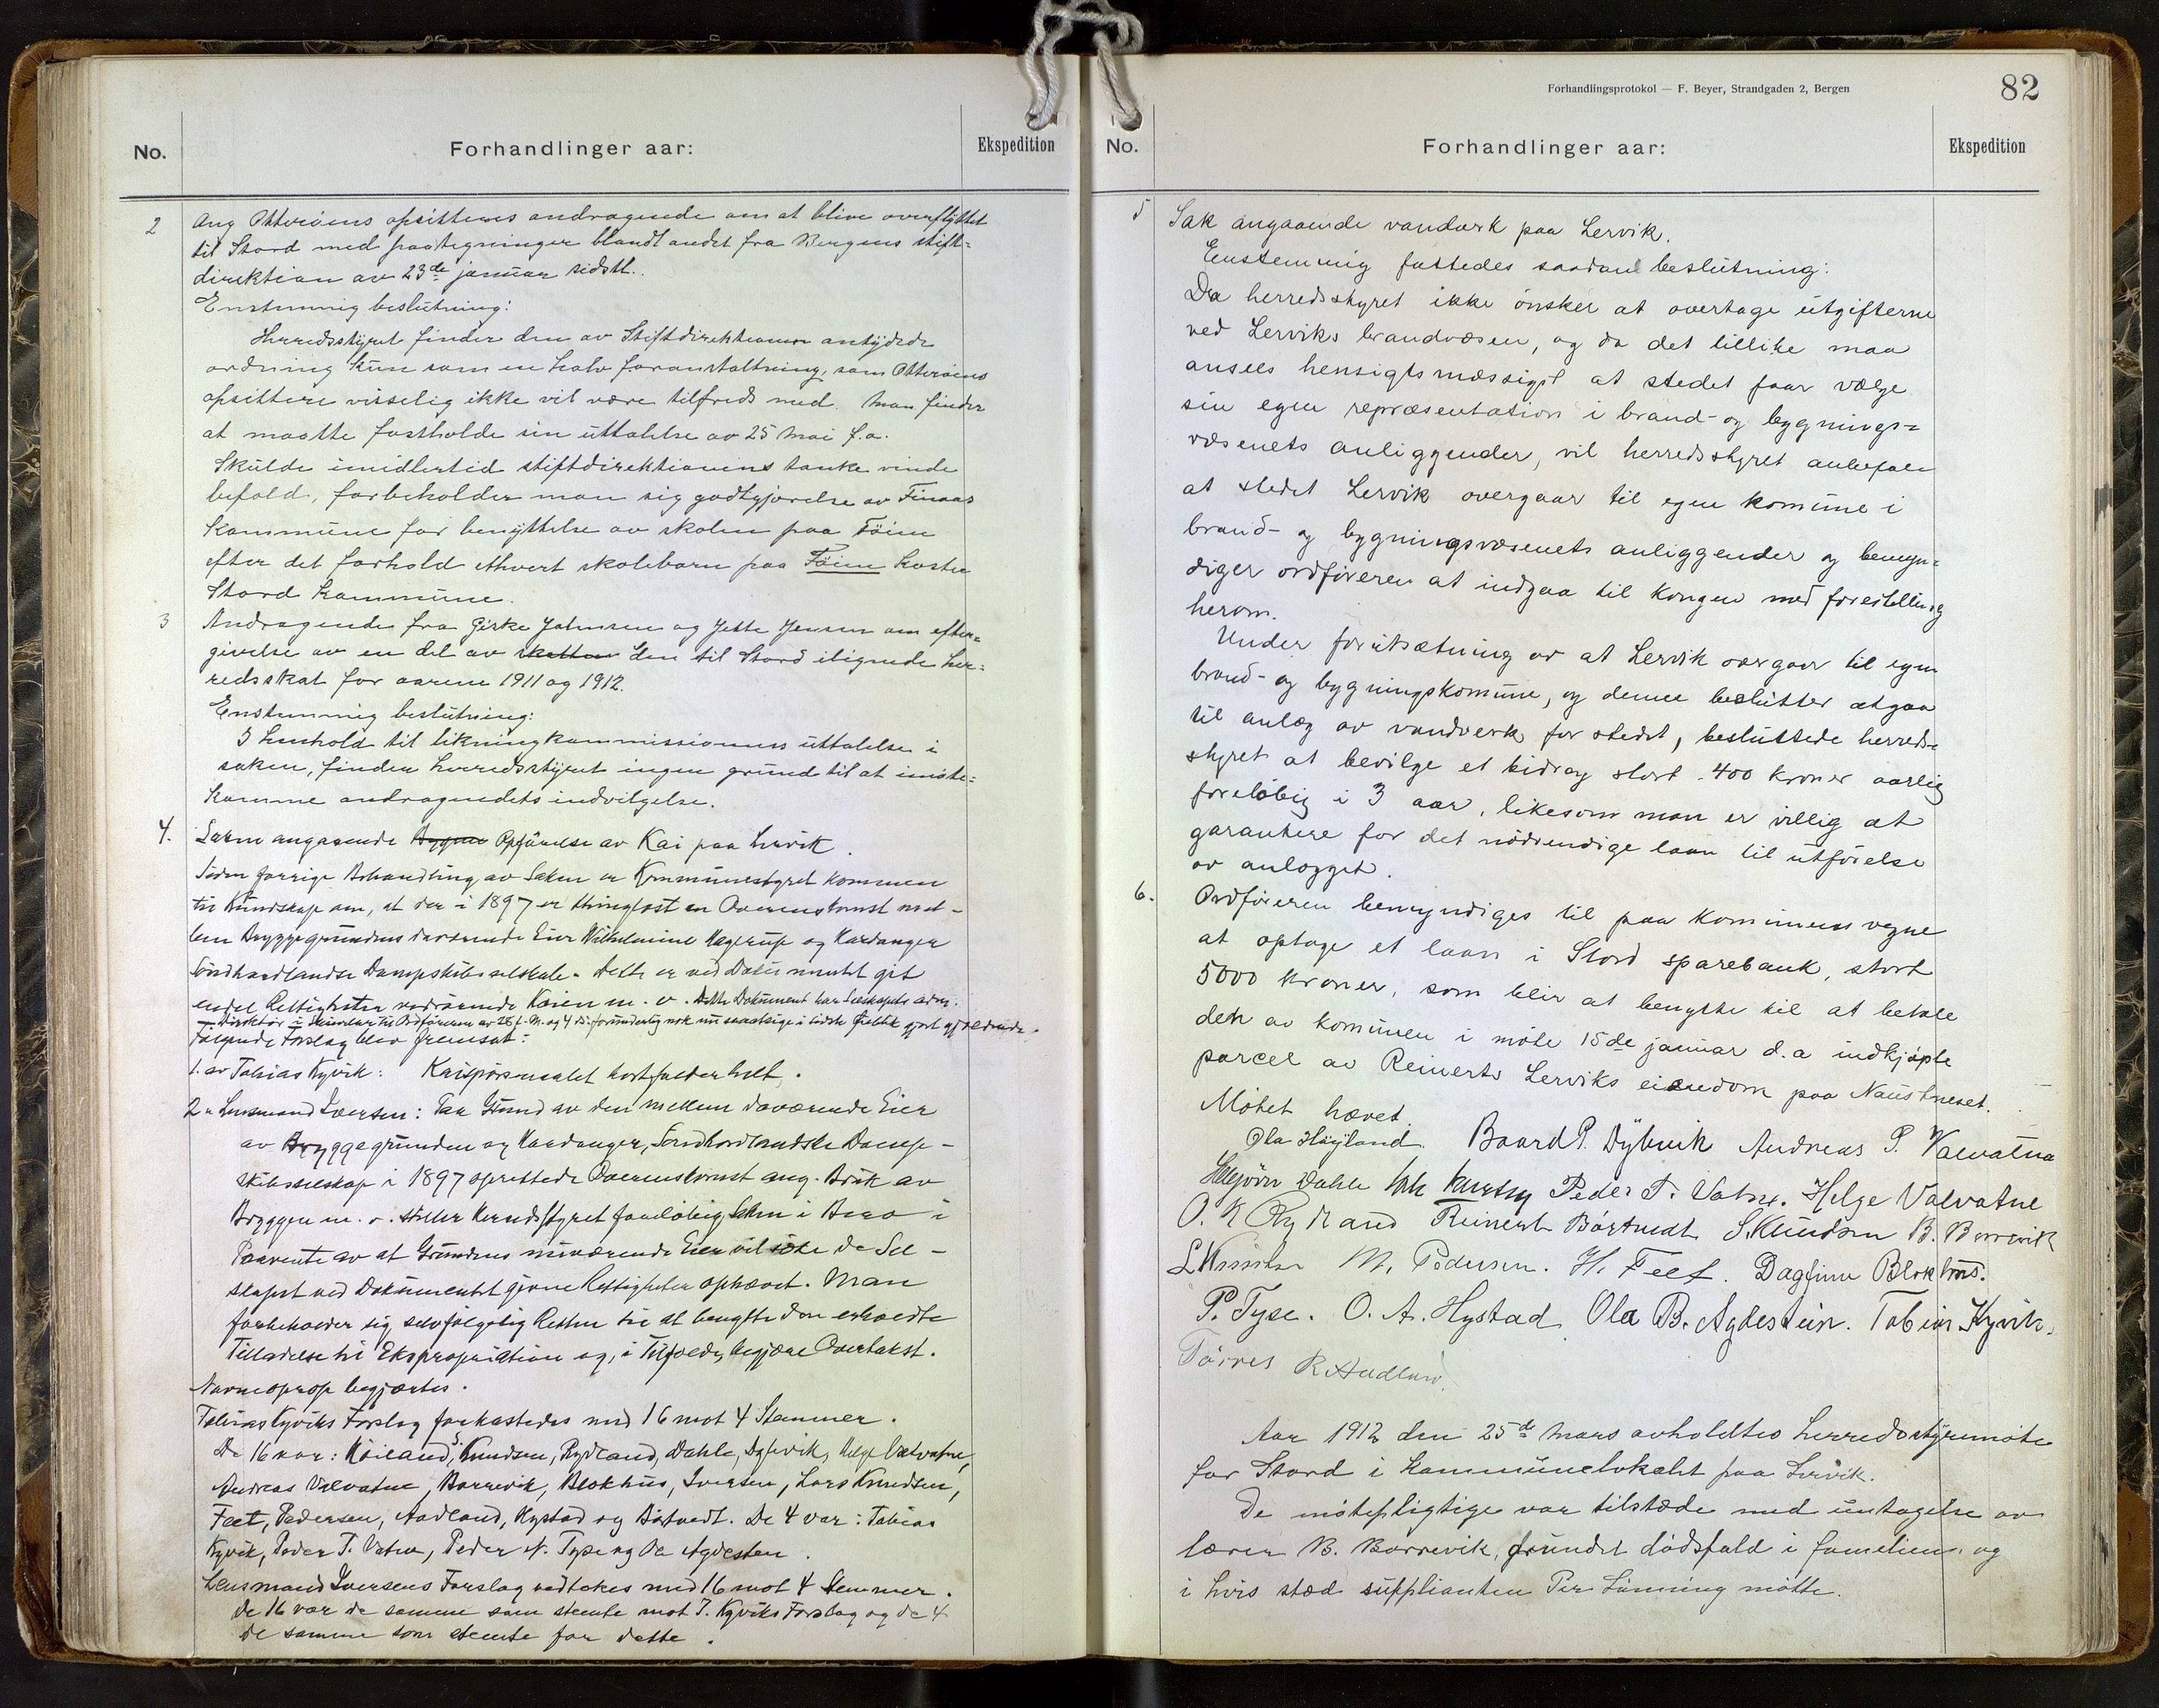 No.
Forhandlinger aar:
Ekspedition
2
Ang Otterøens opsitteres andragende om at blive overflyttet
til Stord med paategninger blandt andet fra Bergens stift-
direktion av 23de januar sidstl.
Enstemmig beslutning:
Herredsstyret finder den av Stiftdirektionen antydede
ordning kun som en halv foranstaltning, som Otterøens
opsittere visselig ikke vil være tilfreds med. Man finder
at maatte fastholde sin uttalelse av 25 Mai f.a.
Skulde imidlertid stiftdirektionens tanke vinde
befald, forbeholder man sig godtgjørelse av Finaas
kommune for benyttelse av skolen paa Føien
efter det forhold ethvert skolebarn paa Føien koster
Stord kommune.
3
Andragende fra Girke Johnsen og Jette Jensen om efter-
givelse av en del av skatten den til Stord ilignede her-
redsskat for aarene 1911 og 1912.
Enstemmig beslutning:
I henhold til likningkommissionens uttalelse i
saken, finder herredsstyret ingen grund til at imøte-
komme andragendets indvilgelse.
4.
Saken angaaende Opførelse av Kai paa Lervik.
Siden forrige Behandling av Saken er Kommunestyret kommen
til Kundskap om, at der i 1897 er thinglæst en Overenskomst mel-
lem Bryggegrundens daværende Eier Wilhelmine Hagerup og Hardanger
Söndhordlandse Dampskibsselskab. Dette er ved Dokumentet git
endel Rettigheter vedrørende Kaien m. v. Dette Dokument har Selskapets adm.
Direktør i Skrivelser til Ordføreren av 28 f. M. og 4 ds. forunderlig nok nu saavidt i sidste Øieblik gjort gjældende.
Følgende Forslag blev fremsat:
1. av Tobias Kyvik: Kaispørsmaalet bortfalder helt.
2 " Lensmand Iversen: Paa Grund av den mellem daværende Eier
av Bryggegrunden og Hardanger, Søndhordlandske Damp-
skibsselskap i 1897 oprettede Overenskomst ang. Bruk av
Bryggen m. v. stiller Herredsstyret foreløbig Saken i Bero i
Paavente av at Grundens nuværende Eier vil søke de Sel-
skapet ved Dokumentet givne Rettigheter ophævet. Man
forbeholder sig selvfølgelig Retten til at benytte den erholdte
Tilladelse til Ekspropriation og, i Tilfælde, begjære Overtakst.
Navneoprop begjærtes.
Tobias Kyviks Forslag forkastedes med 16 mot 4 Stemmer.
De 16 var: Høiland, S. Knudsen, Rydland, Dahle, Dybvik, Helge Valvatne,
Andreas Valvatne, Borrevik, Blokhus, Iversen, Lars Knudsen,
Feet, Pedersen, Aadland, Hystad og Børtvedt. De 4 var: Tobias
Kyvik, Peder T. Vatne, Peder N. Tyse og Ole Agdesten.
Lensmand Iversens Forslag vedtokes med 16 mot 4 Stemmer.
De 16 var de samme som stemte mot T. Kyviks Forslag og de 4
de samme som stemte for dette.
Forhandlingsprotokol — F. Beyer, Strandgaden 2, Bergen
82
No.
Forhandlinger aar:
Ekspedition
5
Sak angaaende vandverk paa Lervik.
Enstemmig fattedes saadan beslutning:
Da herredsstyret ikke ønsker at overtage utgifterne
ved Lerviks brandvæsen, og da det tillike maa
ansees hensigtsmæssigst at stedet faar vælge
sin egen repræsentation i brand- og bygnings-
væsenets anliggender, vil herredsstyret anbefale
at stedet Lervik overgaar til egen komune i
brand- og bygningsvæsenets anliggender og bemyn-
diger ordføreren at indgaa til Kongen med forestilling
herom.
Under forutsætning av at Lervik overgaar til egen
brand- og bygningskomune, og denne beslutter at gaa
til anlæg av vandverk for stedet, besluttede herreds-
styret at bevilge et bidrag stort 400 kroner aarlig
foreløbig i 3 aar, likesom man er villig at
garantere for det nødvendige laan til utførelse
av anlægget.
6.
Ordføreren bemyndiges til paa Komunens vegne
at optage et laan i Stord sparebank, stort
5000 kroner, som blir at benytte til at betale
den av komunen i møte 15de januar d.a indkjøpte
parcel av Reinerts Lerviks eiendom paa Naustneset.
Møtet hævet.
Ola Høyland. Baard P. Dybvik Andreas P. Valvatna
Helgjörn Dahle Peder T. Vatne. Helge Valvatne
O. K Rydland Reinert Börtvedt S. Knudsen B. Borrevik
L Knudsen M. Pedersen. H. Feet. Dagfinn Blokhus.
P. Tyse. O. A. Hystad Ola B. Agdestein. Tobias Kyvik.
Tørres R Aadland.
Aar 1912 den 25de Mars avholdtes herredsstyremøte
for Stord i kommunelokalet paa Lervik.
De møtepligtige var tilstæde med untagelse av
lærer B. Borrevik, grundet dødsfald i familien og
i hvis sted supplianten Per Lønning møtte.